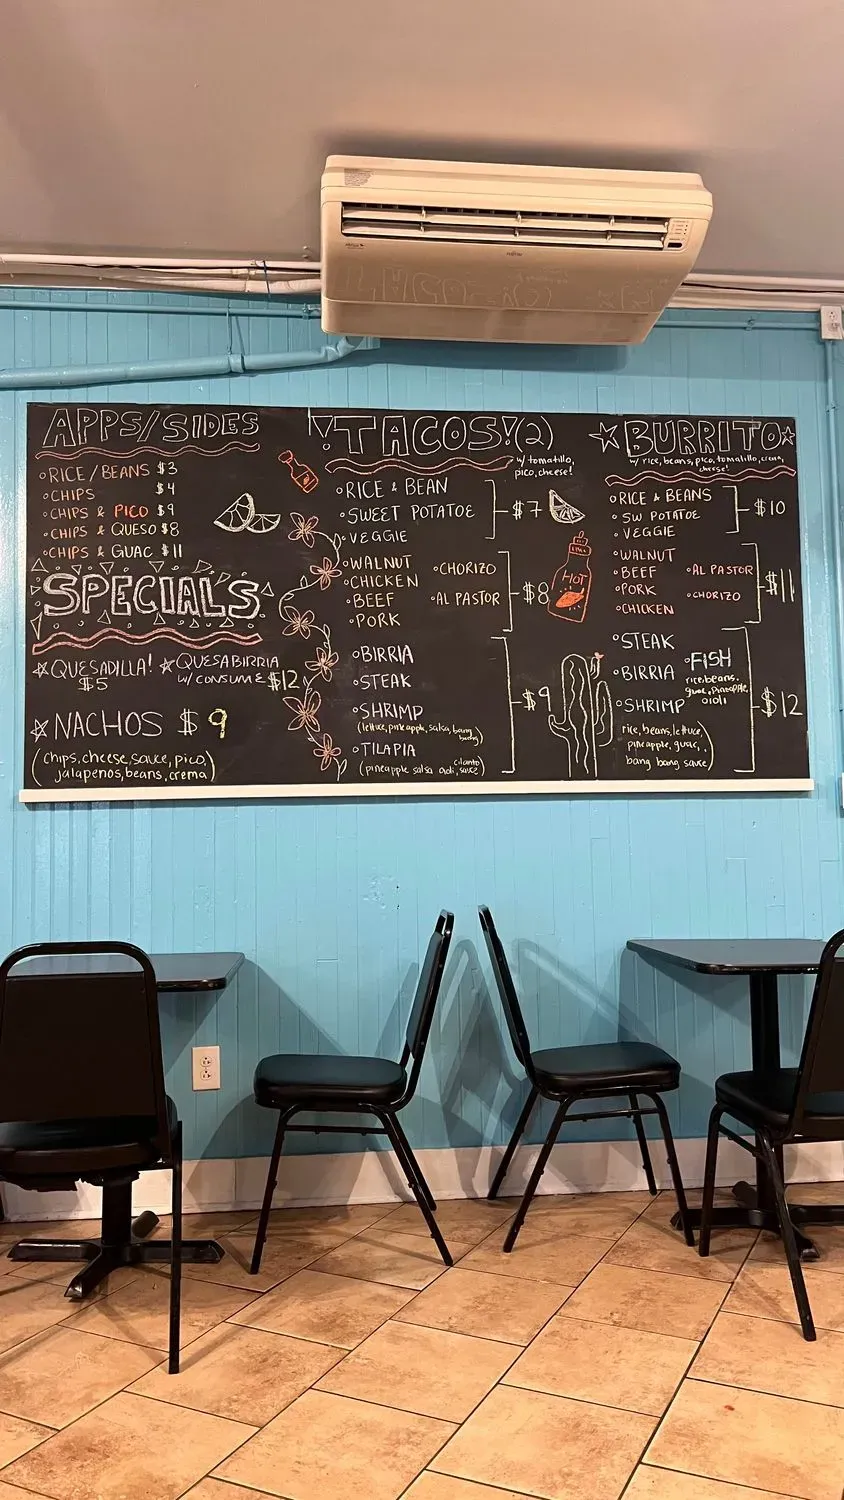 APPS/SIDES
RICE/BEANS $3
CHIPS $4
CHIPS & PICO $9
CHIPS & QUESO $8
CHIPS & GUAC $11
SPECIALS
QUESADILLA! $5
QUESABIRRIA W/ CONSUME $12
NACHOS $9
(chips, cheese, sauce, pico,
jalapenos, beans, crema)
!TACOS! (2)
w/ tomatillo,
pico, cheese!
RICE & BEAN
SWEET POTATOE
VEGGIE
$7
WALNUT
CHICKEN
BEEF
PORK
CHORIZO
AL PASTOR
$8
HOT
BIRRIA
STEAK
SHRIMP
(lettuce, pineapple, salsa, bang bang)
TILAPIA
(pineapple salsa, aioli, sauce) cilantro
$9
BURRITO
w/ rice, beans, pico, tomatillo, crema,
cheese!
RICE & BEANS
SW POTATOE
VEGGIE
$10
WALNUT
BEEF
PORK
CHICKEN
AL PASTOR
CHORIZO
$11
STEAK
BIRRIA
SHRIMP
rice, beans, lettuce,
pineapple, guac,
bang bang sauce)
FISH
rice, beans,
guac, pineapple,
aioli
$12
FUJITSU